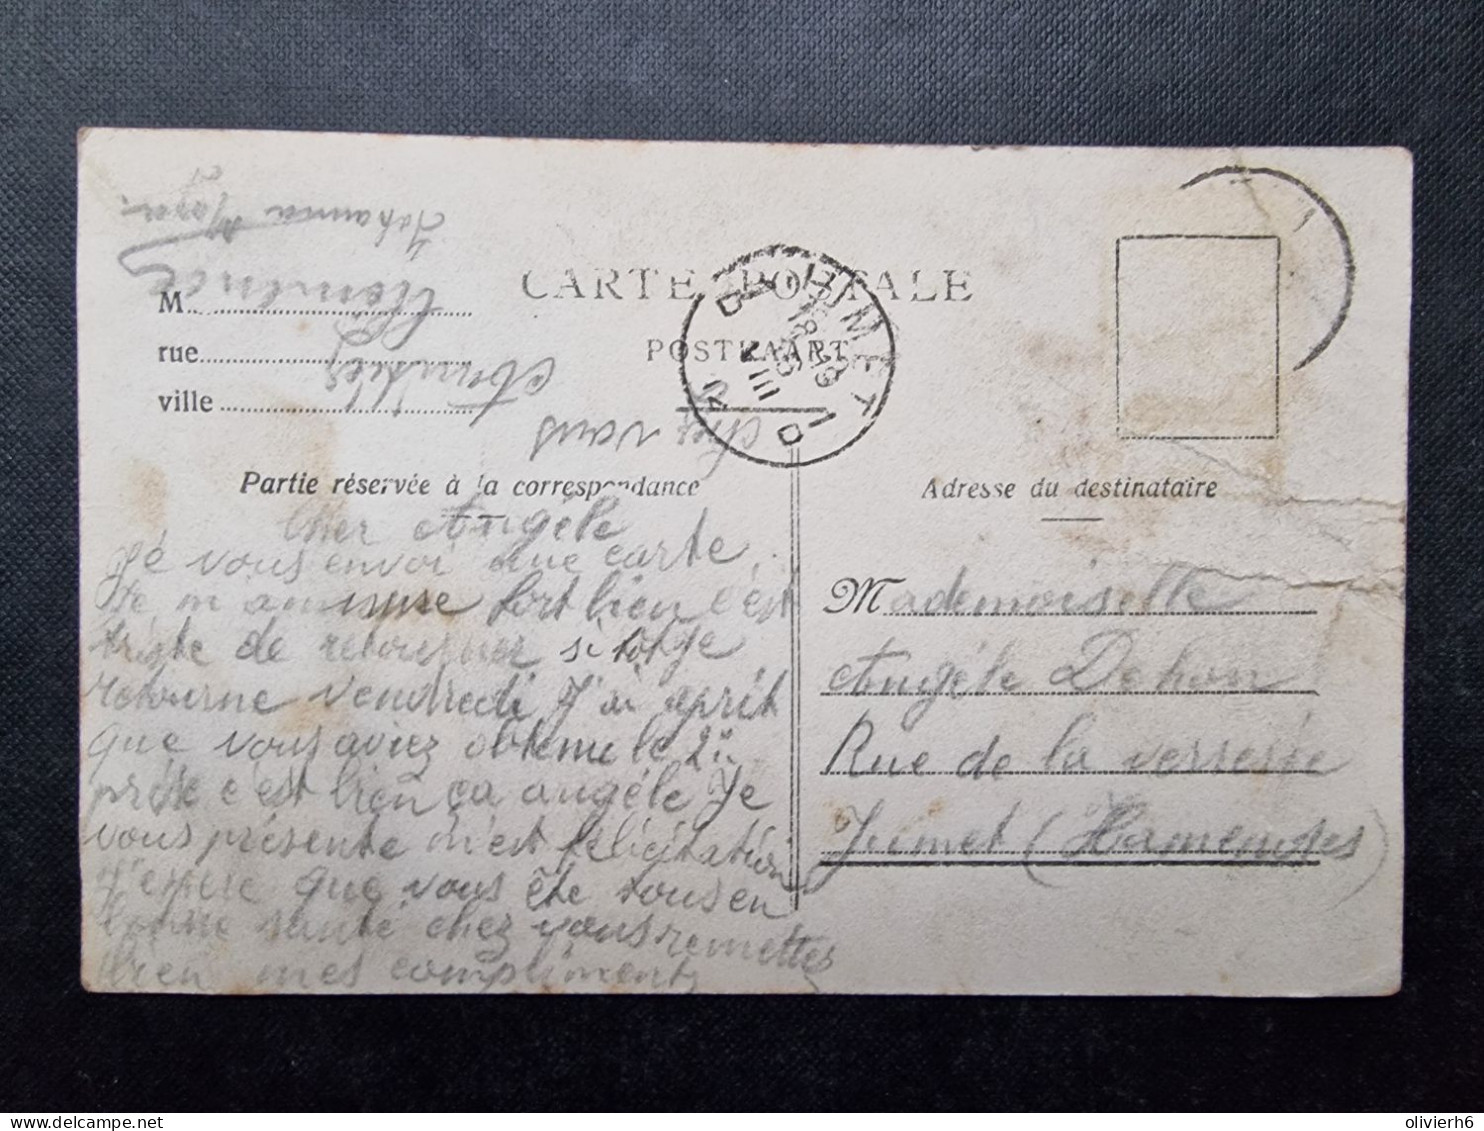 CARTE POSTALE
POSTKAART
M
rue
ville
chez vous
Partie réservée à la correspondance
Adresse du destinataire
JUMET
Cher Angéle
Jé vous envoi une carte
Je m'amusme fort bien c'est
triste de retourner si tot je
retourne vendredi J'ai aprit
que vous aviez obtenu le 2ie
prix c'est bien ça angéle Je
vous présente m'est félicitation
J'espere que vous ête tous en
bonne santé chez vous remettes
bien mes compliments
Mademoiselle
Angéle Dehon
Rue de la verrerie
Jumet (Hamendes)
olivierh6